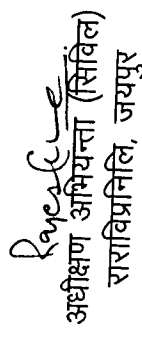 अधीक्षण अभियन्ता (सिविल)
राराविप्रनिलि, जयपुर